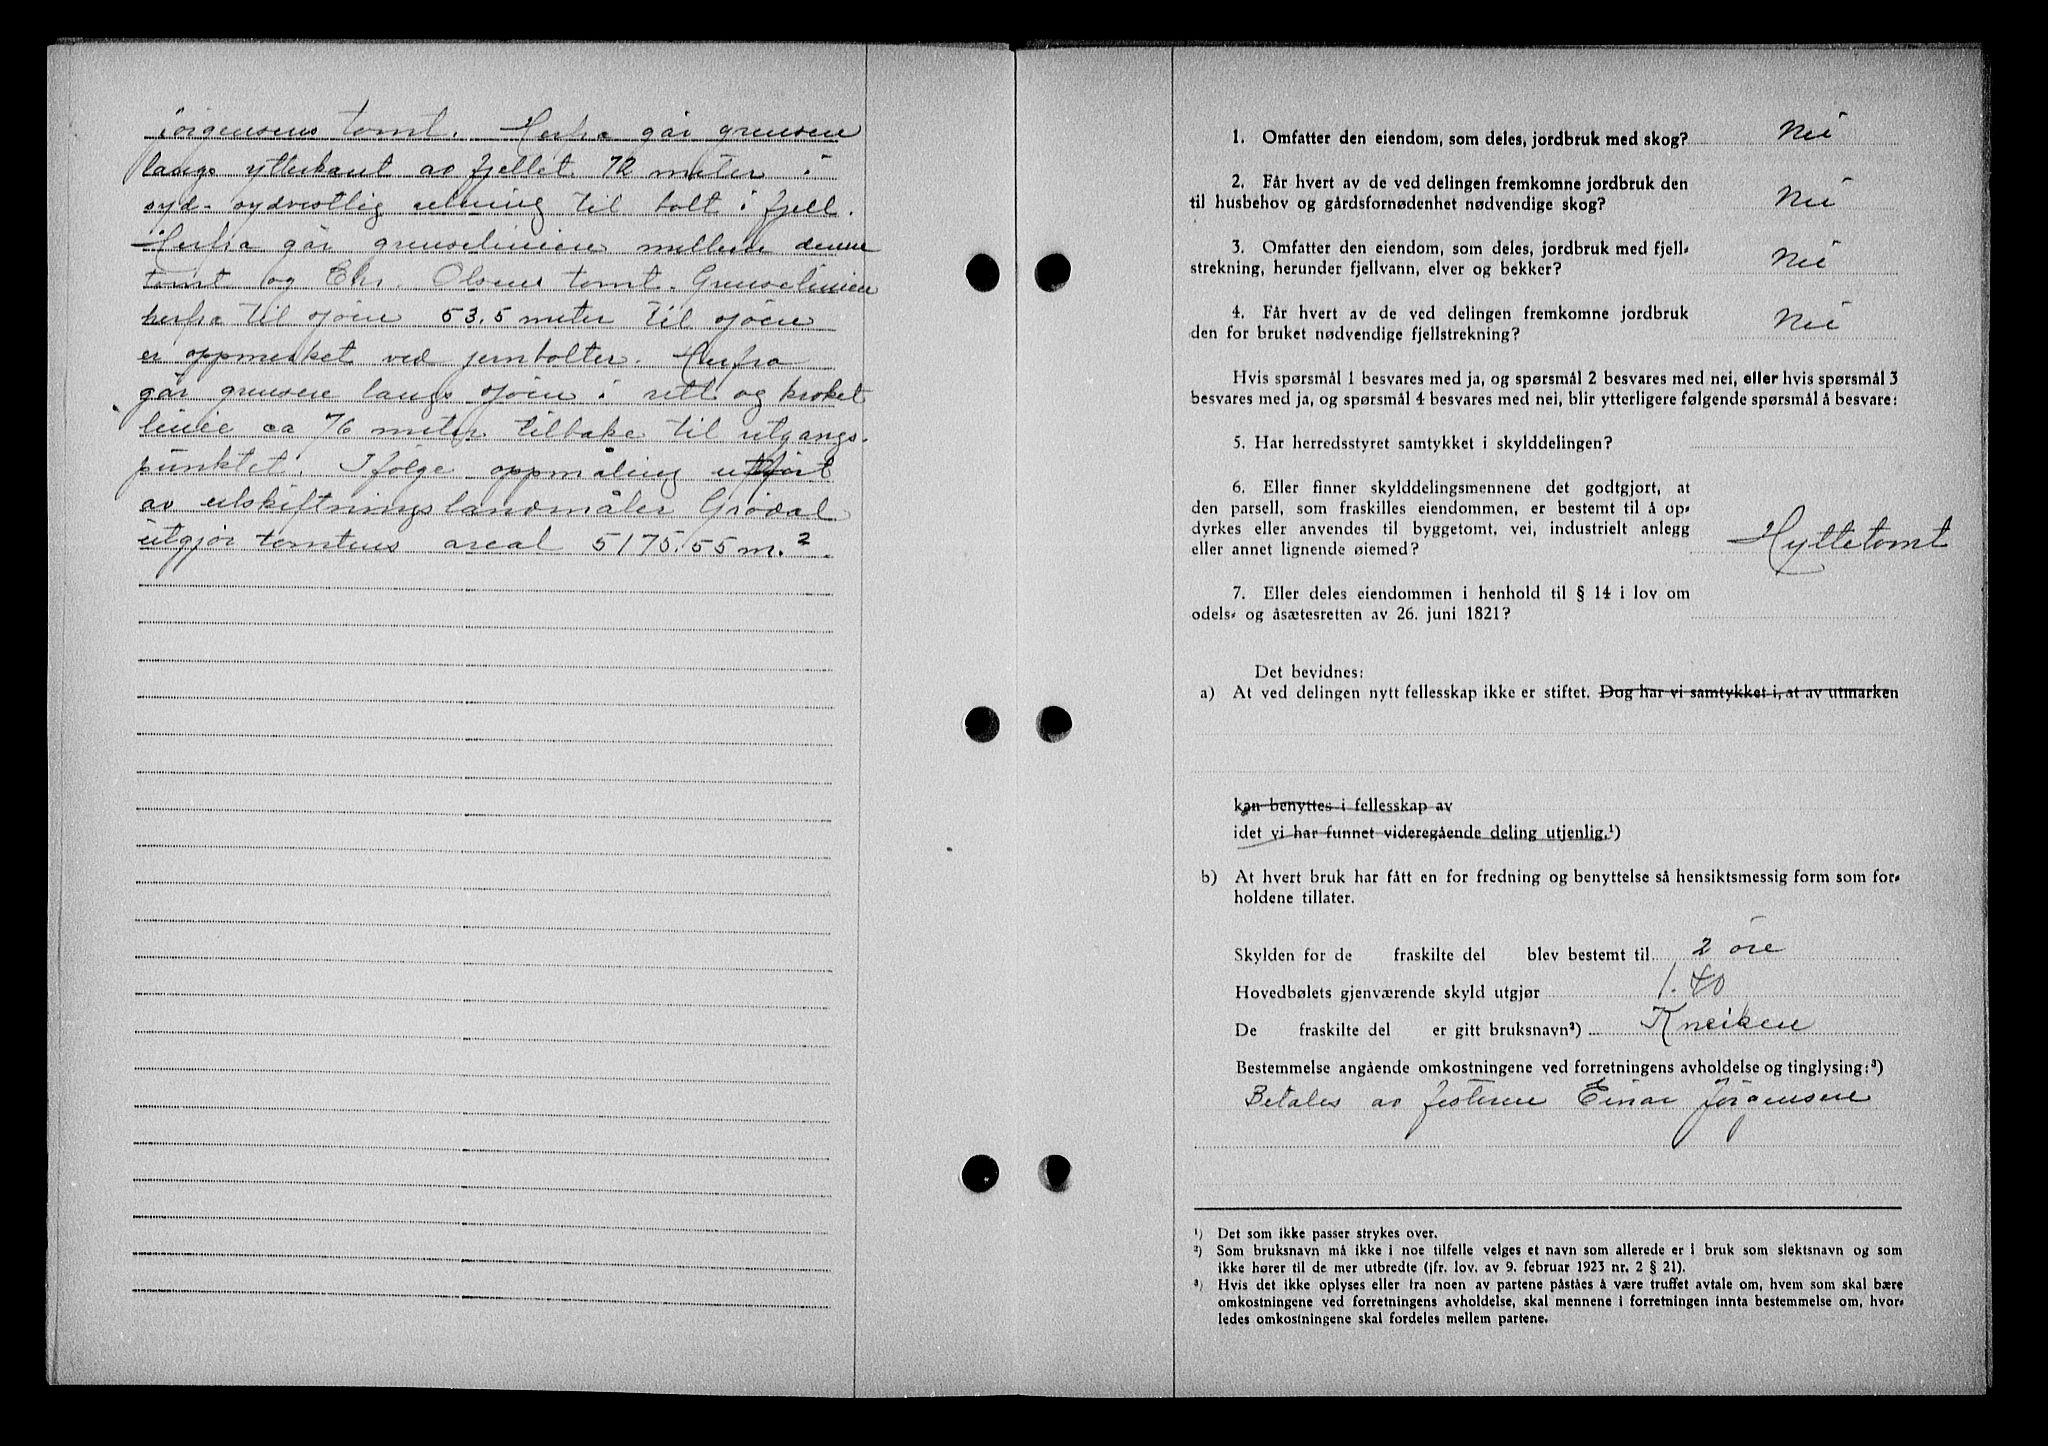 Jørgensens tomt. Herfra går grensen
langs ytterkant av fjellet 72 meter i
syd-sydvestlig retning til bolt i fjell.
Herfra går grenselinien mellem denne
tomt og Chr. Olsens tomt. Grenselinien
herfra til sjøen 53.5 meter til sjøen
er oppmerket ved jernbolter. Herfra
går grensen langs sjøen i rett og kroket
linie ca 76 meter tilbake til utgangs-
punktet. Ifølge oppmåling utført
av utskiftningslandmåler Grødal
utgjør tomtens areal 5175.55 m.²
1. Omfatter den eiendom, som deles, jordbruk med skog? Nei
2. Får hvert av de ved delingen fremkomne jordbruk den
til husbehov og gårdsfornødenhet nødvendige skog? Nei
3. Omfatter den eiendom, som deles, jordbruk med fjell-
strekning, herunder fjellvann, elver og bekker? Nei
4. Får hvert av de ved delingen fremkomne jordbruk
den for bruket nødvendige fjellstrekning? Nei
Hvis spørsmål 1 besvares med ja, og spørsmål 2 besvares med nei, eller hvis spørsmål 3
besvares med ja, og spørsmål 4 besvares med nei, blir ytterligere følgende spørsmål å besvare:
5. Har herredsstyret samtykket i skylddelingen?
6. Eller finner skylddelingsmennene det godtgjort, at
den parsell, som fraskilles eiendommen, er bestemt til å op-
dyrkes eller anvendes til byggetomt, vei, industrielt anlegg
eller annet lignende øiemed? Hyttetomt
7. Eller deles eiendommen i henhold til § 14 i lov om
odels- og åsætesretten av 26. juni 1821?
Det bevidnes:
a) At ved delingen nytt fellesskap ikke er stiftet. Dog har vi samtykket i, at av utmarken
kan benyttes i fellesskap av
idet vi har funnet videregående deling utjenlig.¹)
b) At hvert bruk har fått en for fredning og benyttelse så hensiktsmessig form som for-
holdene tillater.
Skylden for de fraskilte del blev bestemt til 2 øre
Hovedbølets gjenværende skyld utgjør 1.40
De fraskilte del er gitt bruksnavn²) Kneiken
Bestemmelse angående omkostningene ved forretningens avholdelse og tinglysing:³)
Betales av festeren Einar Jørgensen
¹) Det som ikke passer strykes over.
²) Som bruksnavn må ikke i noe tilfelle velges et navn som allerede er i bruk som slektsnavn og som
ikke hører til de mer utbredte (jfr. lov. av 9. februar 1923 nr. 2 § 21).
³) Hvis det ikke oplyses eller fra noen av partene påståes å være truffet avtale om, hvem som skal bære
omkostningene ved forretningens avholdelse, skal mennene i forretningen innta bestemmelse om, hvor-
ledes omkostningene skal fordeles mellem partene.